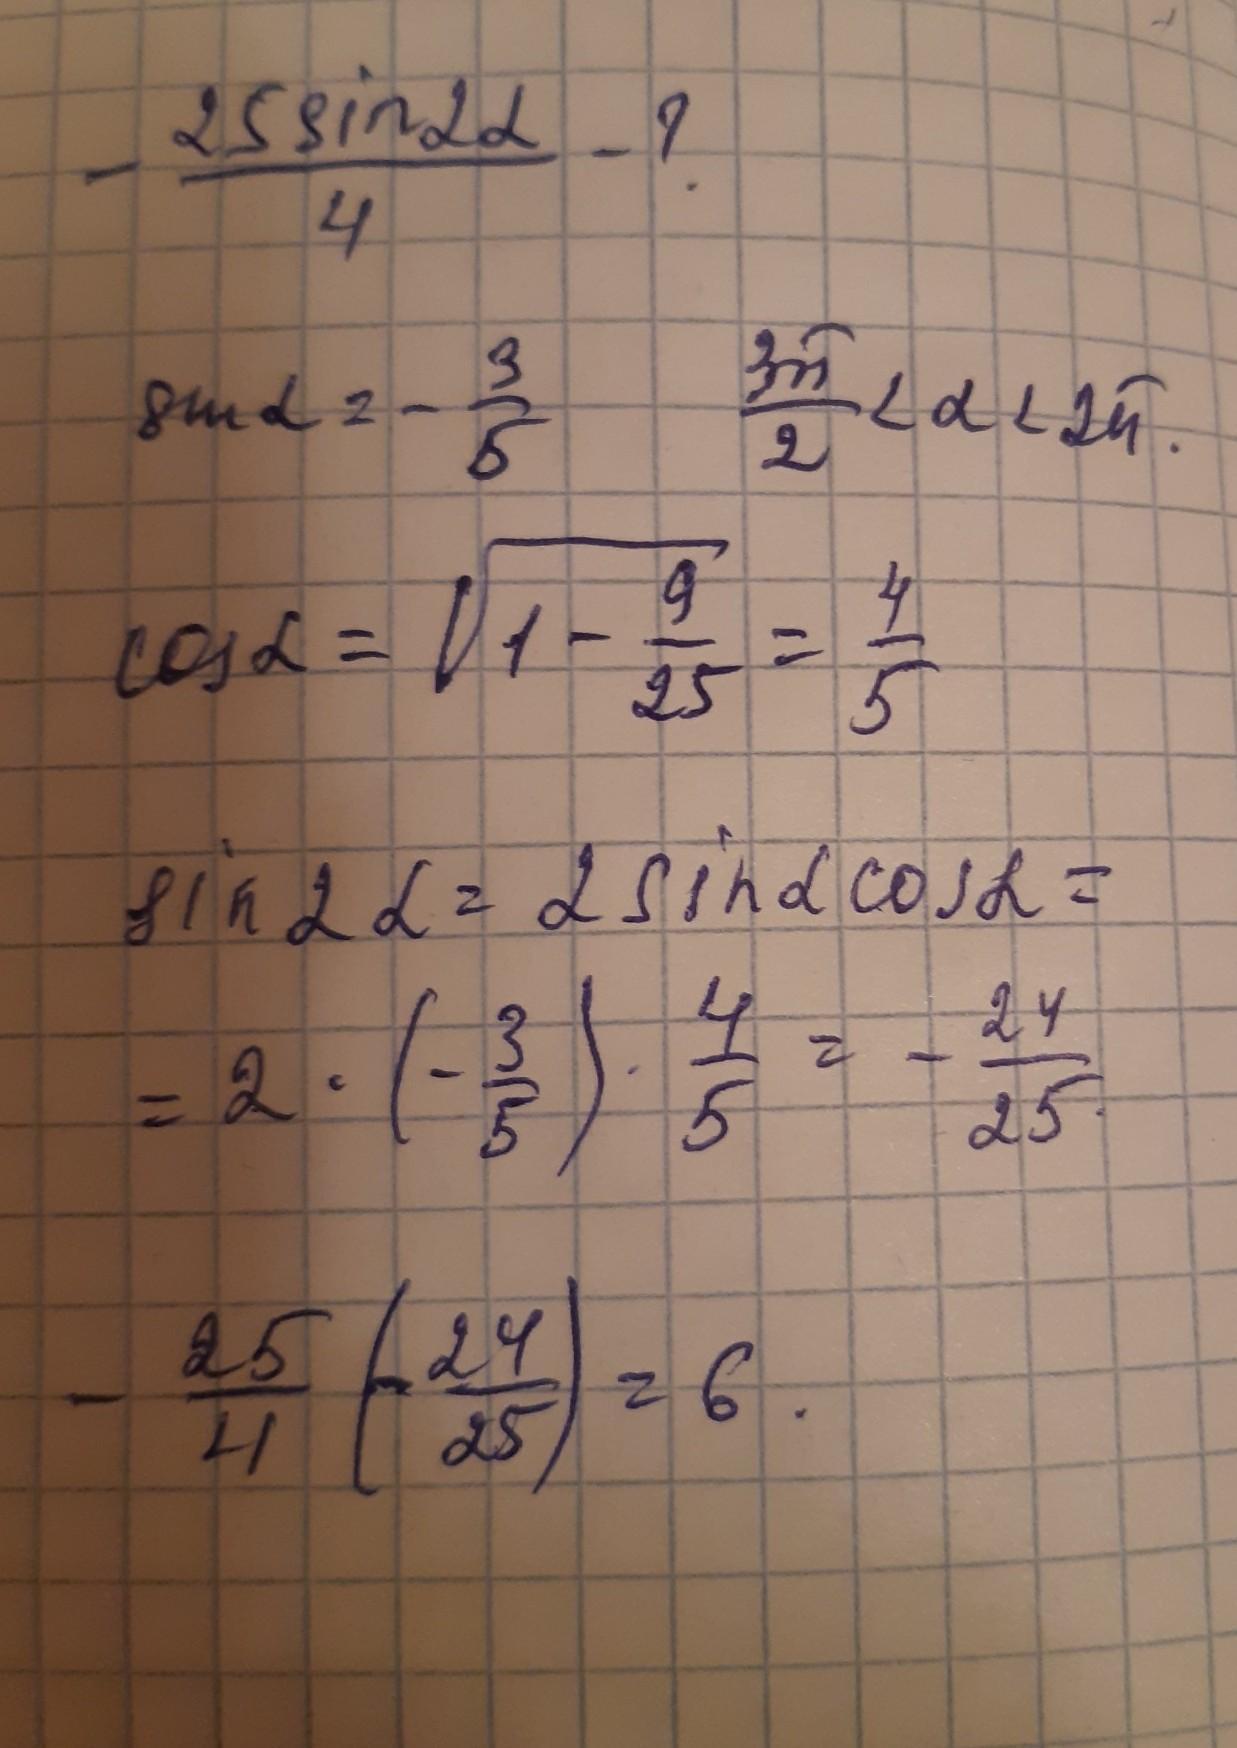 - 25sin2α/4 - ?
sinα = - 3/5    3π/2 < α < 2π.
cosα = √(1 - 9/25) = 4/5
sin2α = 2sinαcosα =
= 2 · (- 3/5) · 4/5 = - 24/25.
- 25/4 (- 24/25) = 6.